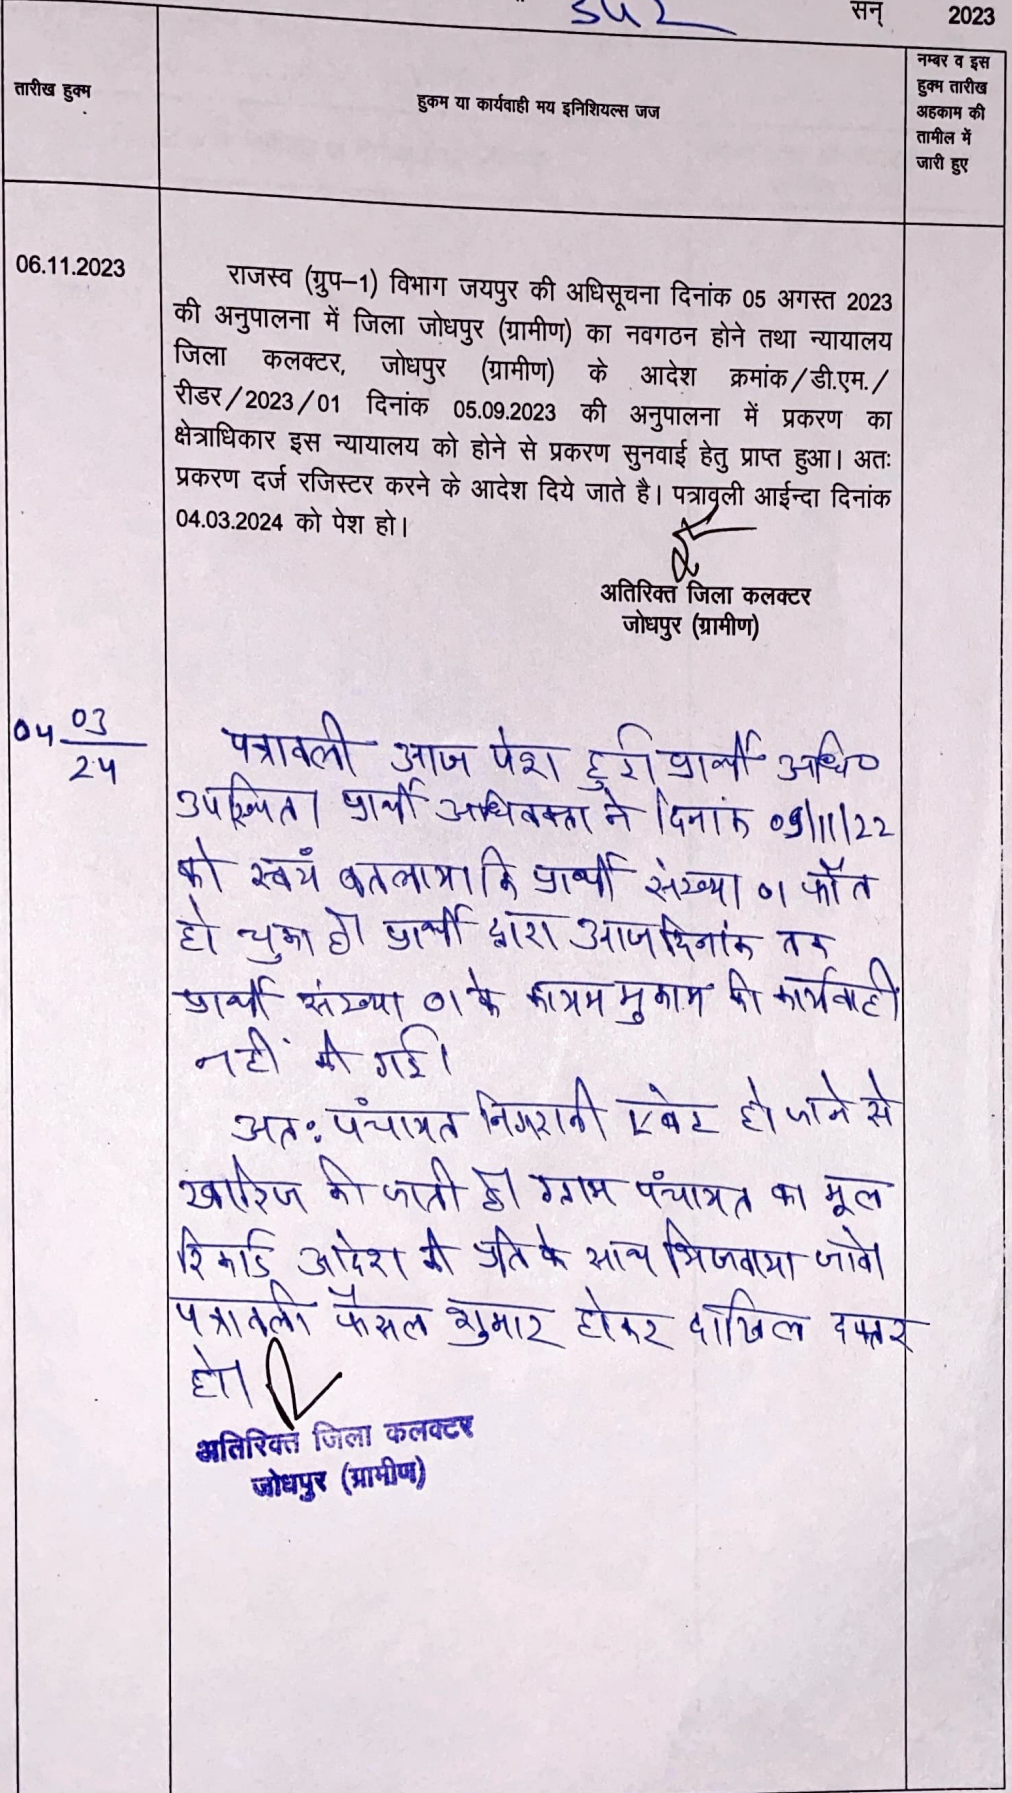 सन् 2023
तारीख हुक्म
हुकम या कार्यवाही मय इनिशियल्स जज
नम्बर व इस
हुक्म तारीख
अहकाम की
तामील में
जारी हुए
06.11.2023
राजस्व (ग्रुप–1) विभाग जयपुर की अधिसूचना दिनांक 05 अगस्त 2023
की अनुपालना में जिला जोधपुर (ग्रामीण) का नवगठन होने तथा न्यायालय
जिला कलक्टर, जोधपुर (ग्रामीण) के आदेश क्रमांक/डी.एम./
रीडर/2023/01 दिनांक 05.09.2023 की अनुपालना में प्रकरण का
क्षेत्राधिकार इस न्यायालय को होने से प्रकरण सुनवाई हेतु प्राप्त हुआ। अतः
प्रकरण दर्ज रजिस्टर करने के आदेश दिये जाते है। पत्रावली आईन्दा दिनांक
04.03.2024 को पेश हो।
अतिरिक्त जिला कलक्टर
जोधपुर (ग्रामीण)
04 03
24
पत्रावली आज पेश हुई। प्रार्थी अधि०
उपस्थित। प्रार्थी अधिवक्ता ने दिनांक 09/11/22
को स्वयं बतलाया कि प्रार्थी संख्या 01 फौत
हो चुका है। प्रार्थी द्वारा आज दिनांक तक
प्रार्थी संख्या 01 के कायम मुकाम की कार्यवाही
नहीं की गई।
अतः पंचायत निगरानी एबेट हो जाने से
खारिज की जाती है। ग्राम पंचायत का मूल
रिकार्ड आदेश की प्रति के साथ भिजवाया जावे।
पत्रावली फैसल शुमार होकर दाखिल दफ्तर
हो।
अतिरिक्त जिला कलक्टर
जोधपुर (ग्रामीण)